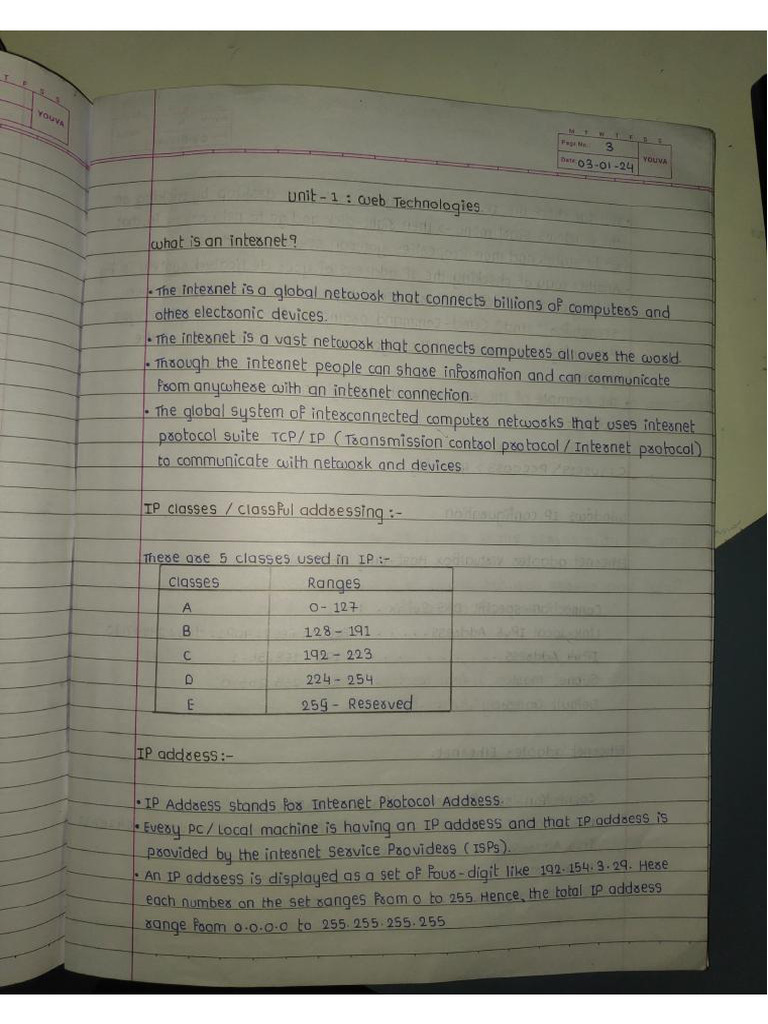 T F S S
YOUVA
M T W T F S S
Page No. 3
Date: 03-01-24
YOUVA
Unit-1 : Web Technologies
What is an internet?
• The internet is a global network that connects billions of computers and
other electronic devices.
• The internet is a vast network that connects computers all over the world.
• Through the internet people can share information and can communicate
from anywhere with an internet connection.
• The global system of interconnected computer networks that uses internet
protocol suite TCP/IP (Transmission control protocol / Internet protocol)
to communicate with network and devices
IP classes / classful addressing :-
There are 5 classes used in IP :-
Classes Ranges
A 0 - 127
B 128 - 191
C 192 - 223
D 224 - 254
E 255 - Reserved
IP address :-
• IP Address stands for Internet Protocol Address.
• Every PC / Local machine is having an IP address and that IP address is
provided by the internet Service Providers (ISPs).
• An IP address is displayed as a set of four-digit like 192.154.3.29. Here
each number on the set ranges from 0 to 255. Hence, the total IP address
range from 0.0.0.0 to 255.255.255.255